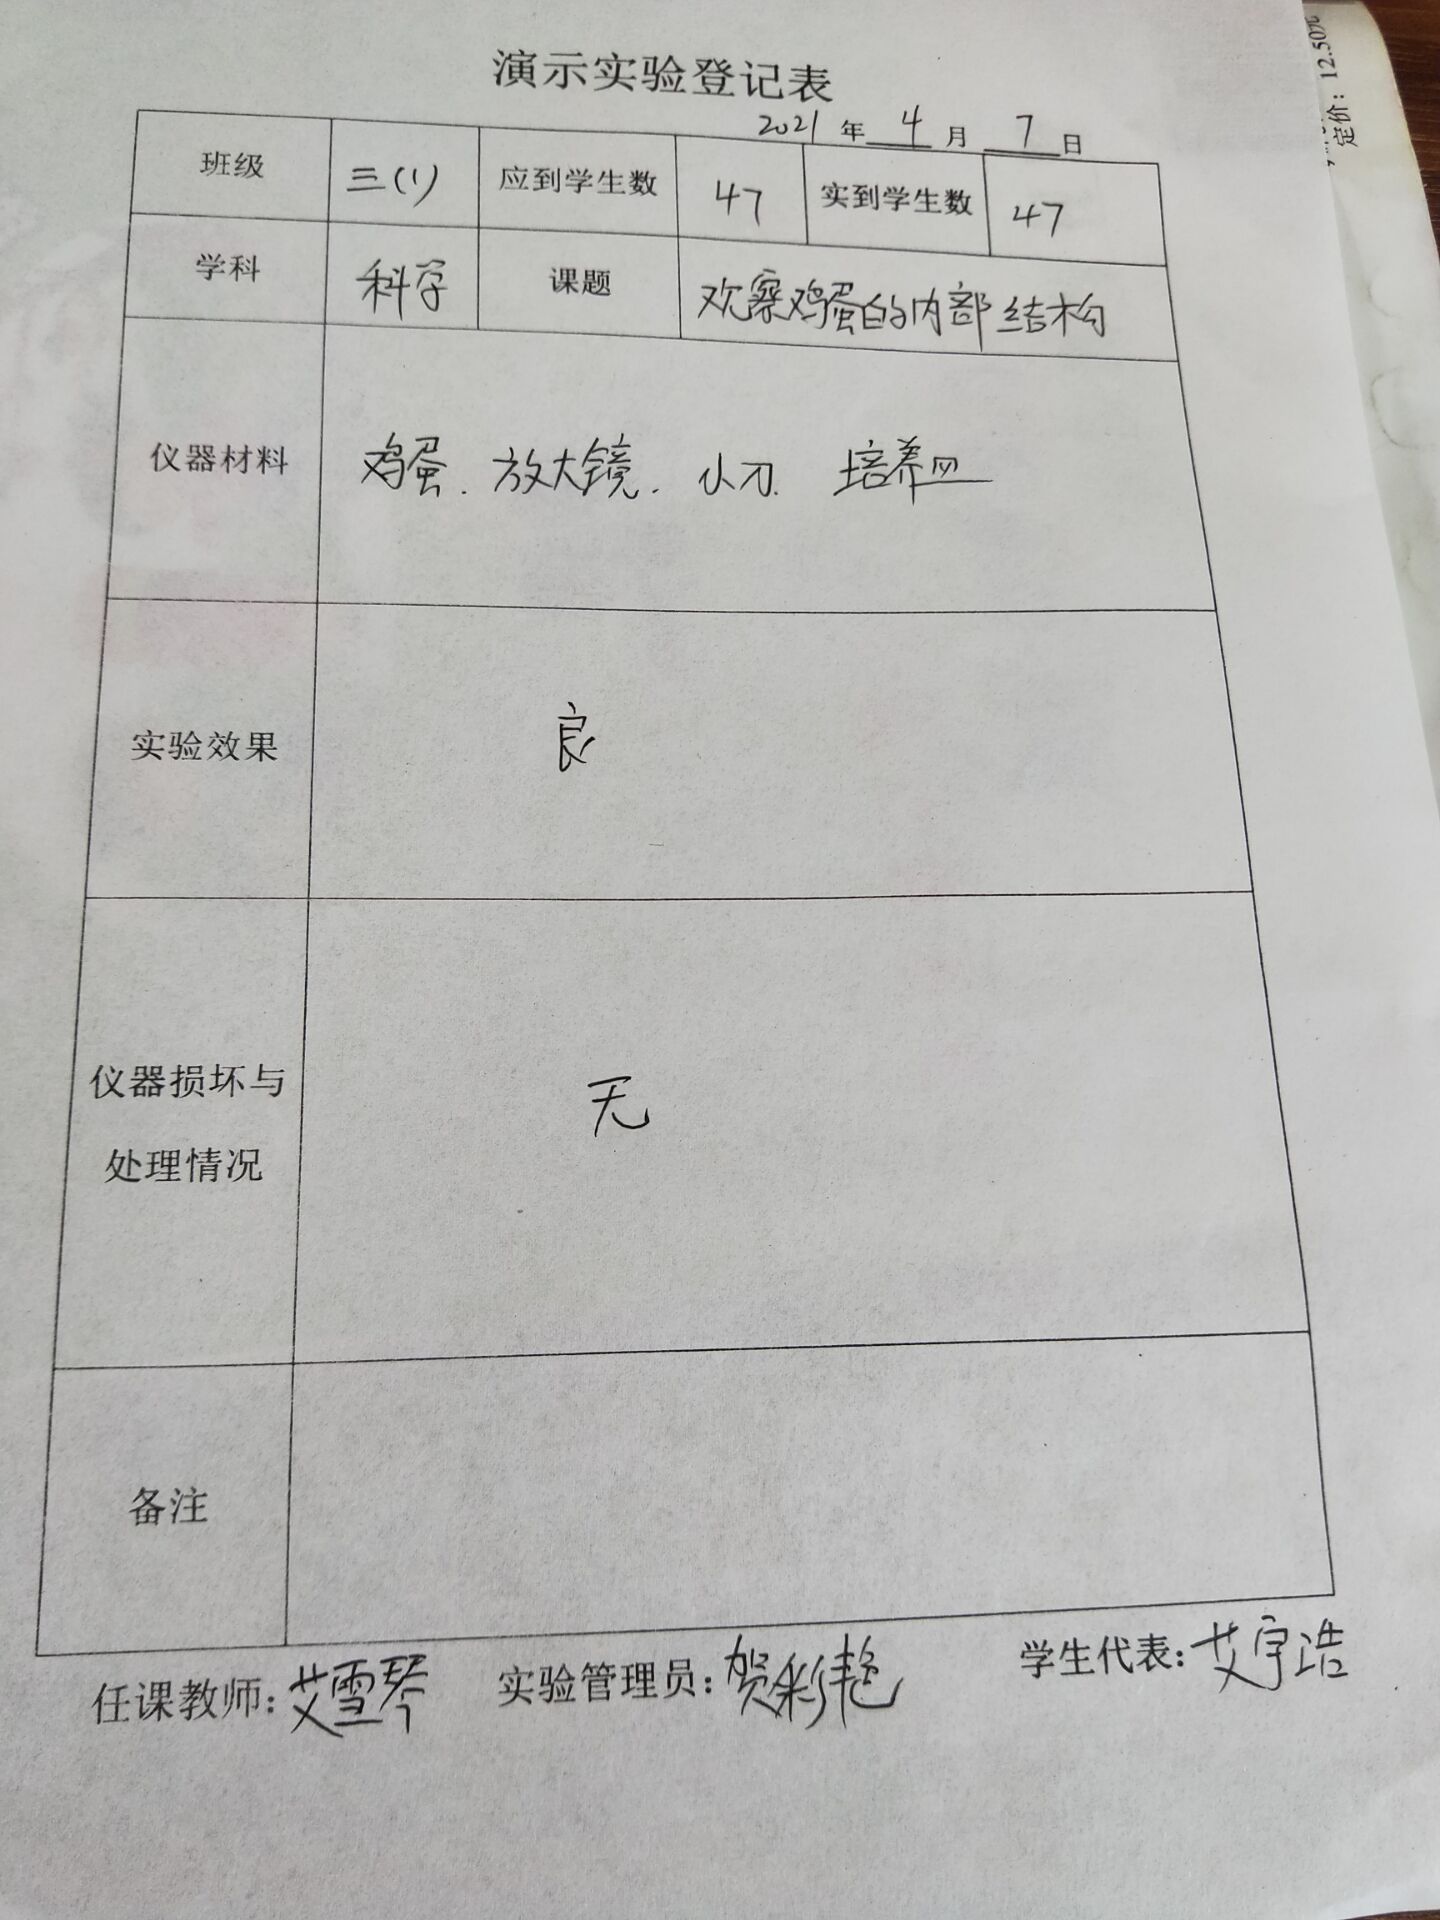 演示实验登记表
2021 年 4 月 7 日
班级 三(1) 应到学生数 47 实到学生数 47
学科 科学 课题 观察鸡蛋的内部结构
仪器材料 鸡蛋. 放大镜. 小刀. 培养皿
实验效果 良
仪器损坏与
处理情况 无
备注
任课教师:艾雪琴 实验管理员:贺彩艳 学生代表:艾宇浩
定价: 12.50元